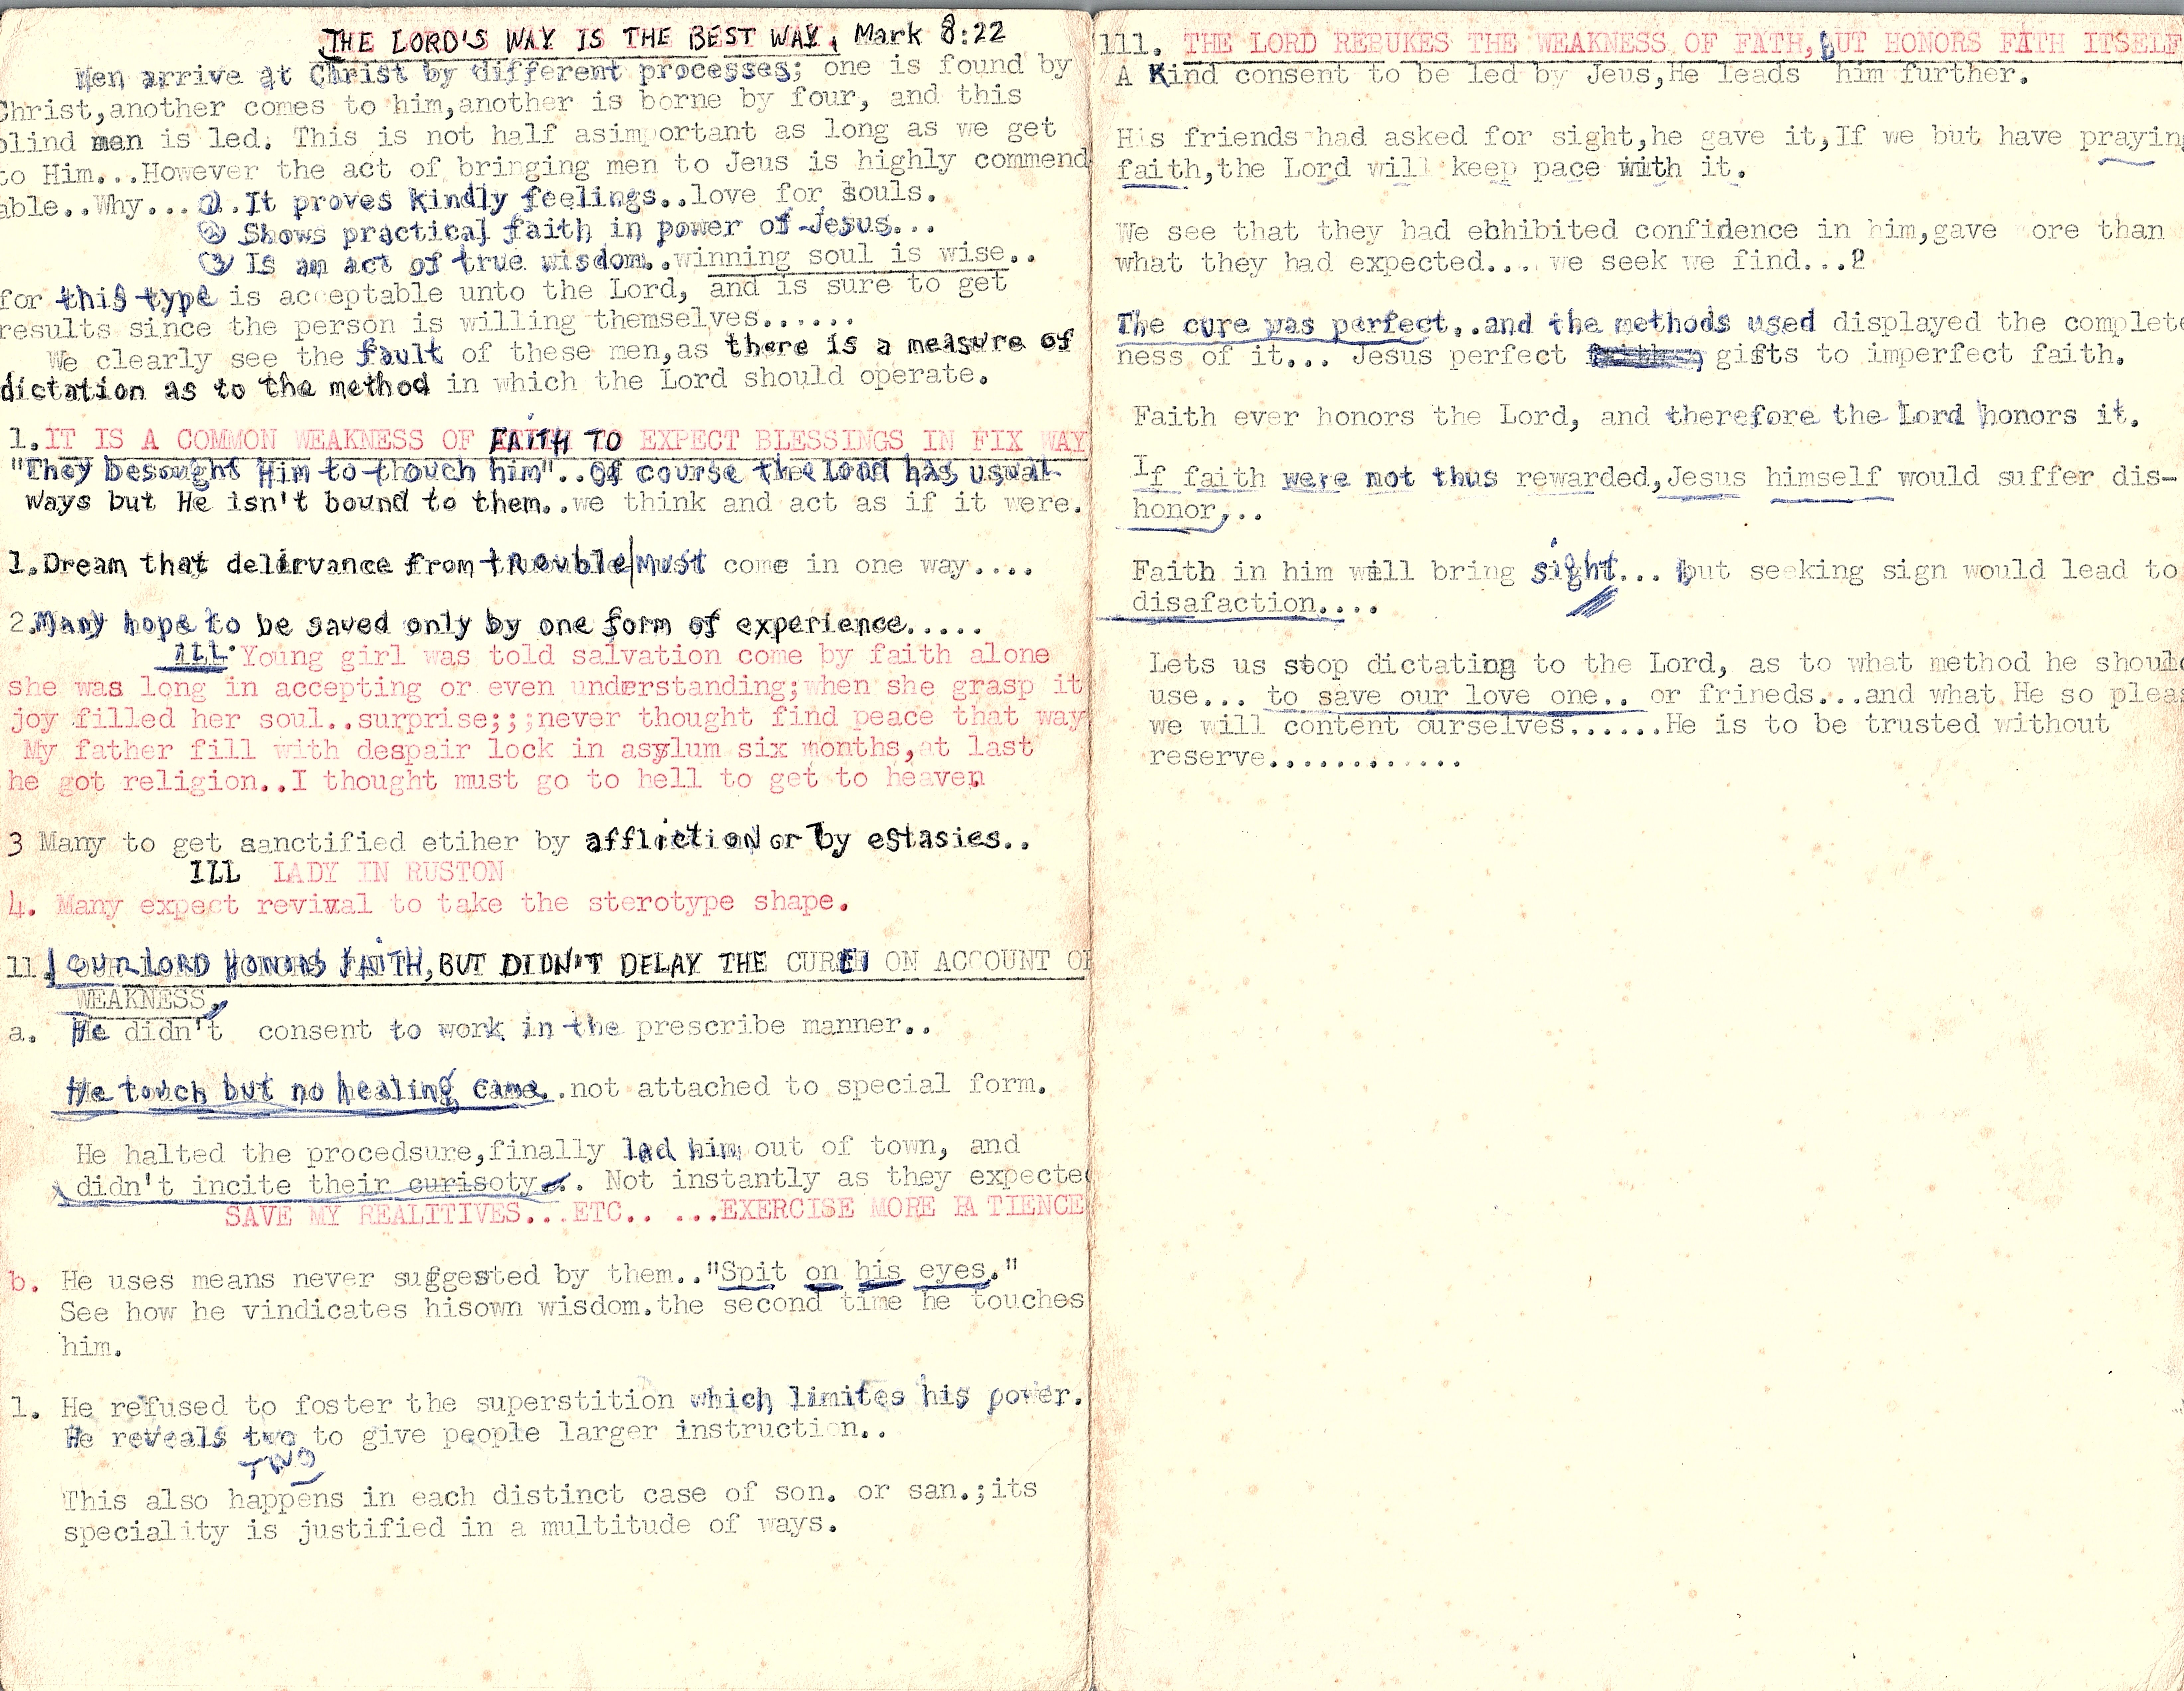 THE LORD'S WAY IS THE BEST WAY, Mark 8:22
Men arrive at Christ by different processes; one is found by
Christ,another comes to him,another is borne by four, and this
blind man is led. This is not half asimportant as long as we get
to Him...However the act of bringing men to Jeus is highly commend
able..Why...1..It proves kindly feelings..love for souls.
2 Shows practical faith in power of Jesus...
3 Is an act of true wisdom..winning soul is wise..
for this type is acceptable unto the Lord, and is sure to get
results since the person is willing themselves......
We clearly see the fault of these men,as there is a measure of
dictation as to the method in which the Lord should operate.
1.IT IS A COMMON WEAKNESS OF FAITH TO EXPECT BLESSINGS IN FIX WAY
"They besought Him to thouch him"..Of course the Lord has usual
ways but He isn't bound to them..we think and act as if it were.
1.Dream that delirvance from trouble must come in one way....
2.Many hope to be saved only by one form of experience.....
ILL. Young girl was told salvation come by faith alone
she was long in accepting or even understanding;when she grasp it
joy filled her soul..surprise;;;never thought find peace that way
My father fill with despair lock in asylum six months,at last
he got religion..I thought must go to hell to get to heaven
3 Many to get sanctified etiher by affliction or by estasies..
ILL LADY IN RUSTON
4. Many expect revival to take the sterotype shape.
11. OUR LORD HONORS FAITH,BUT DIDN'T DELAY THE CURE ON ACCOUNT OF
WEAKNESS.
a. He didn't consent to work in the prescribe manner..
He touch but no healing came..not attached to special form.
He halted the procedsure,finally led him out of town, and
didn't incite their curisoty... Not instantly as they expected
SAVE MY REALITIVES...ETC.. ...EXERCISE MORE PA TIENCE
b. He uses means never suggested by them.."Spit on his eyes."
See how he vindicates hisown wisdom.the second time he touches
him.
1. He refused to foster the superstition which limites his power.
He reveals two to give people larger instruction..
TWO
This also happens in each distinct case of son. or san.;its
speciality is justified in a multitude of ways.
111. THE LORD REBUKES THE WEAKNESS OF FATH,BUT HONORS FATH ITSELF
A Kind consent to be led by Jeus,He leads him further.
His friends had asked for sight,he gave it,If we but have praying
faith,the Lord will keep pace with it.
We see that they had ehhibited confidence in him,gave ore than
what they had expected.... we seek we find...?
The cure was perfect,.and the methods used displayed the complete
ness of it... Jesus perfect gifts to imperfect faith.
Faith ever honors the Lord, and therefore the Lord honors it.
If faith were not thus rewarded,Jesus himself would suffer dis-
honor,..
Faith in him will bring sight... but seeking sign would lead to
disafaction....
Lets us stop dictating to the Lord, as to what method he should
use... to save our love one.. or frineds...and what He so pleas
we will content ourselves......He is to be trusted without
reserve............